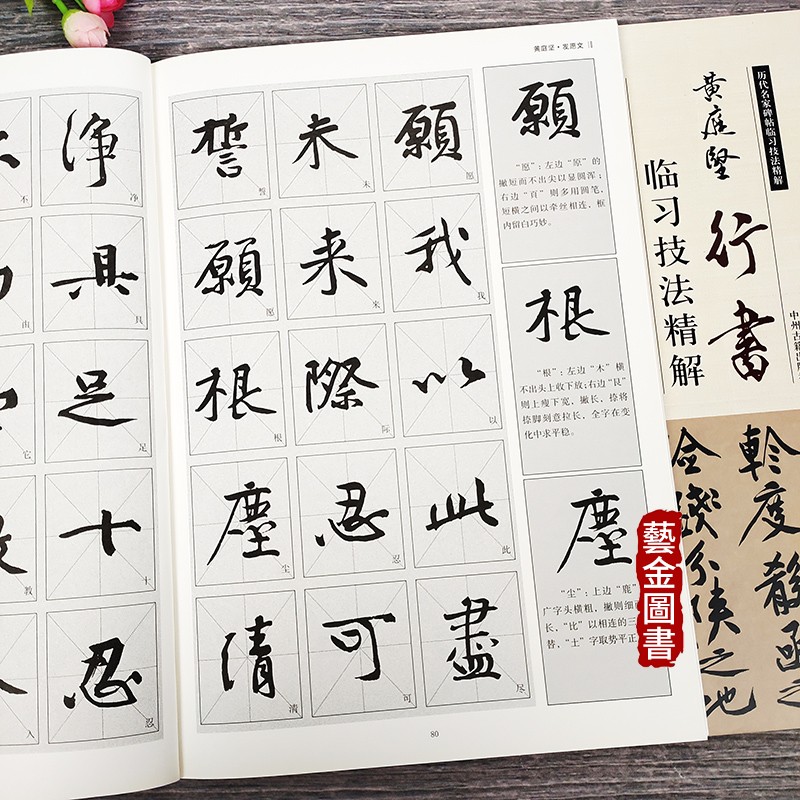 黄庭坚·发愿文
願
“愿”：左边“原”的
撇短而不出尖以显圆浑；
右边“頁”则多用圆笔，
短横之间以牵丝相连，框
内留白巧妙。
根
“根”：左边“木”横
不出头上收下放；右边“艮”
则上瘦下宽，撇长，捺将
捺脚刻意拉长，全字在变
化中求平稳。
塵
“尘”：上边“鹿”
广字头横粗，撇则细
长，“比”以相连的三
替，“土”字取势平正
願我以此盡
愿我以此尽
未来際忍可
未来际忍可
誓願根塵清
誓愿根尘清
80
净具足十忍
净具足十忍
不由它教入
历代名家碑帖临习技法精解
黄庭堅
行書
临习技法精解
中州古籍出版
藝金圖書